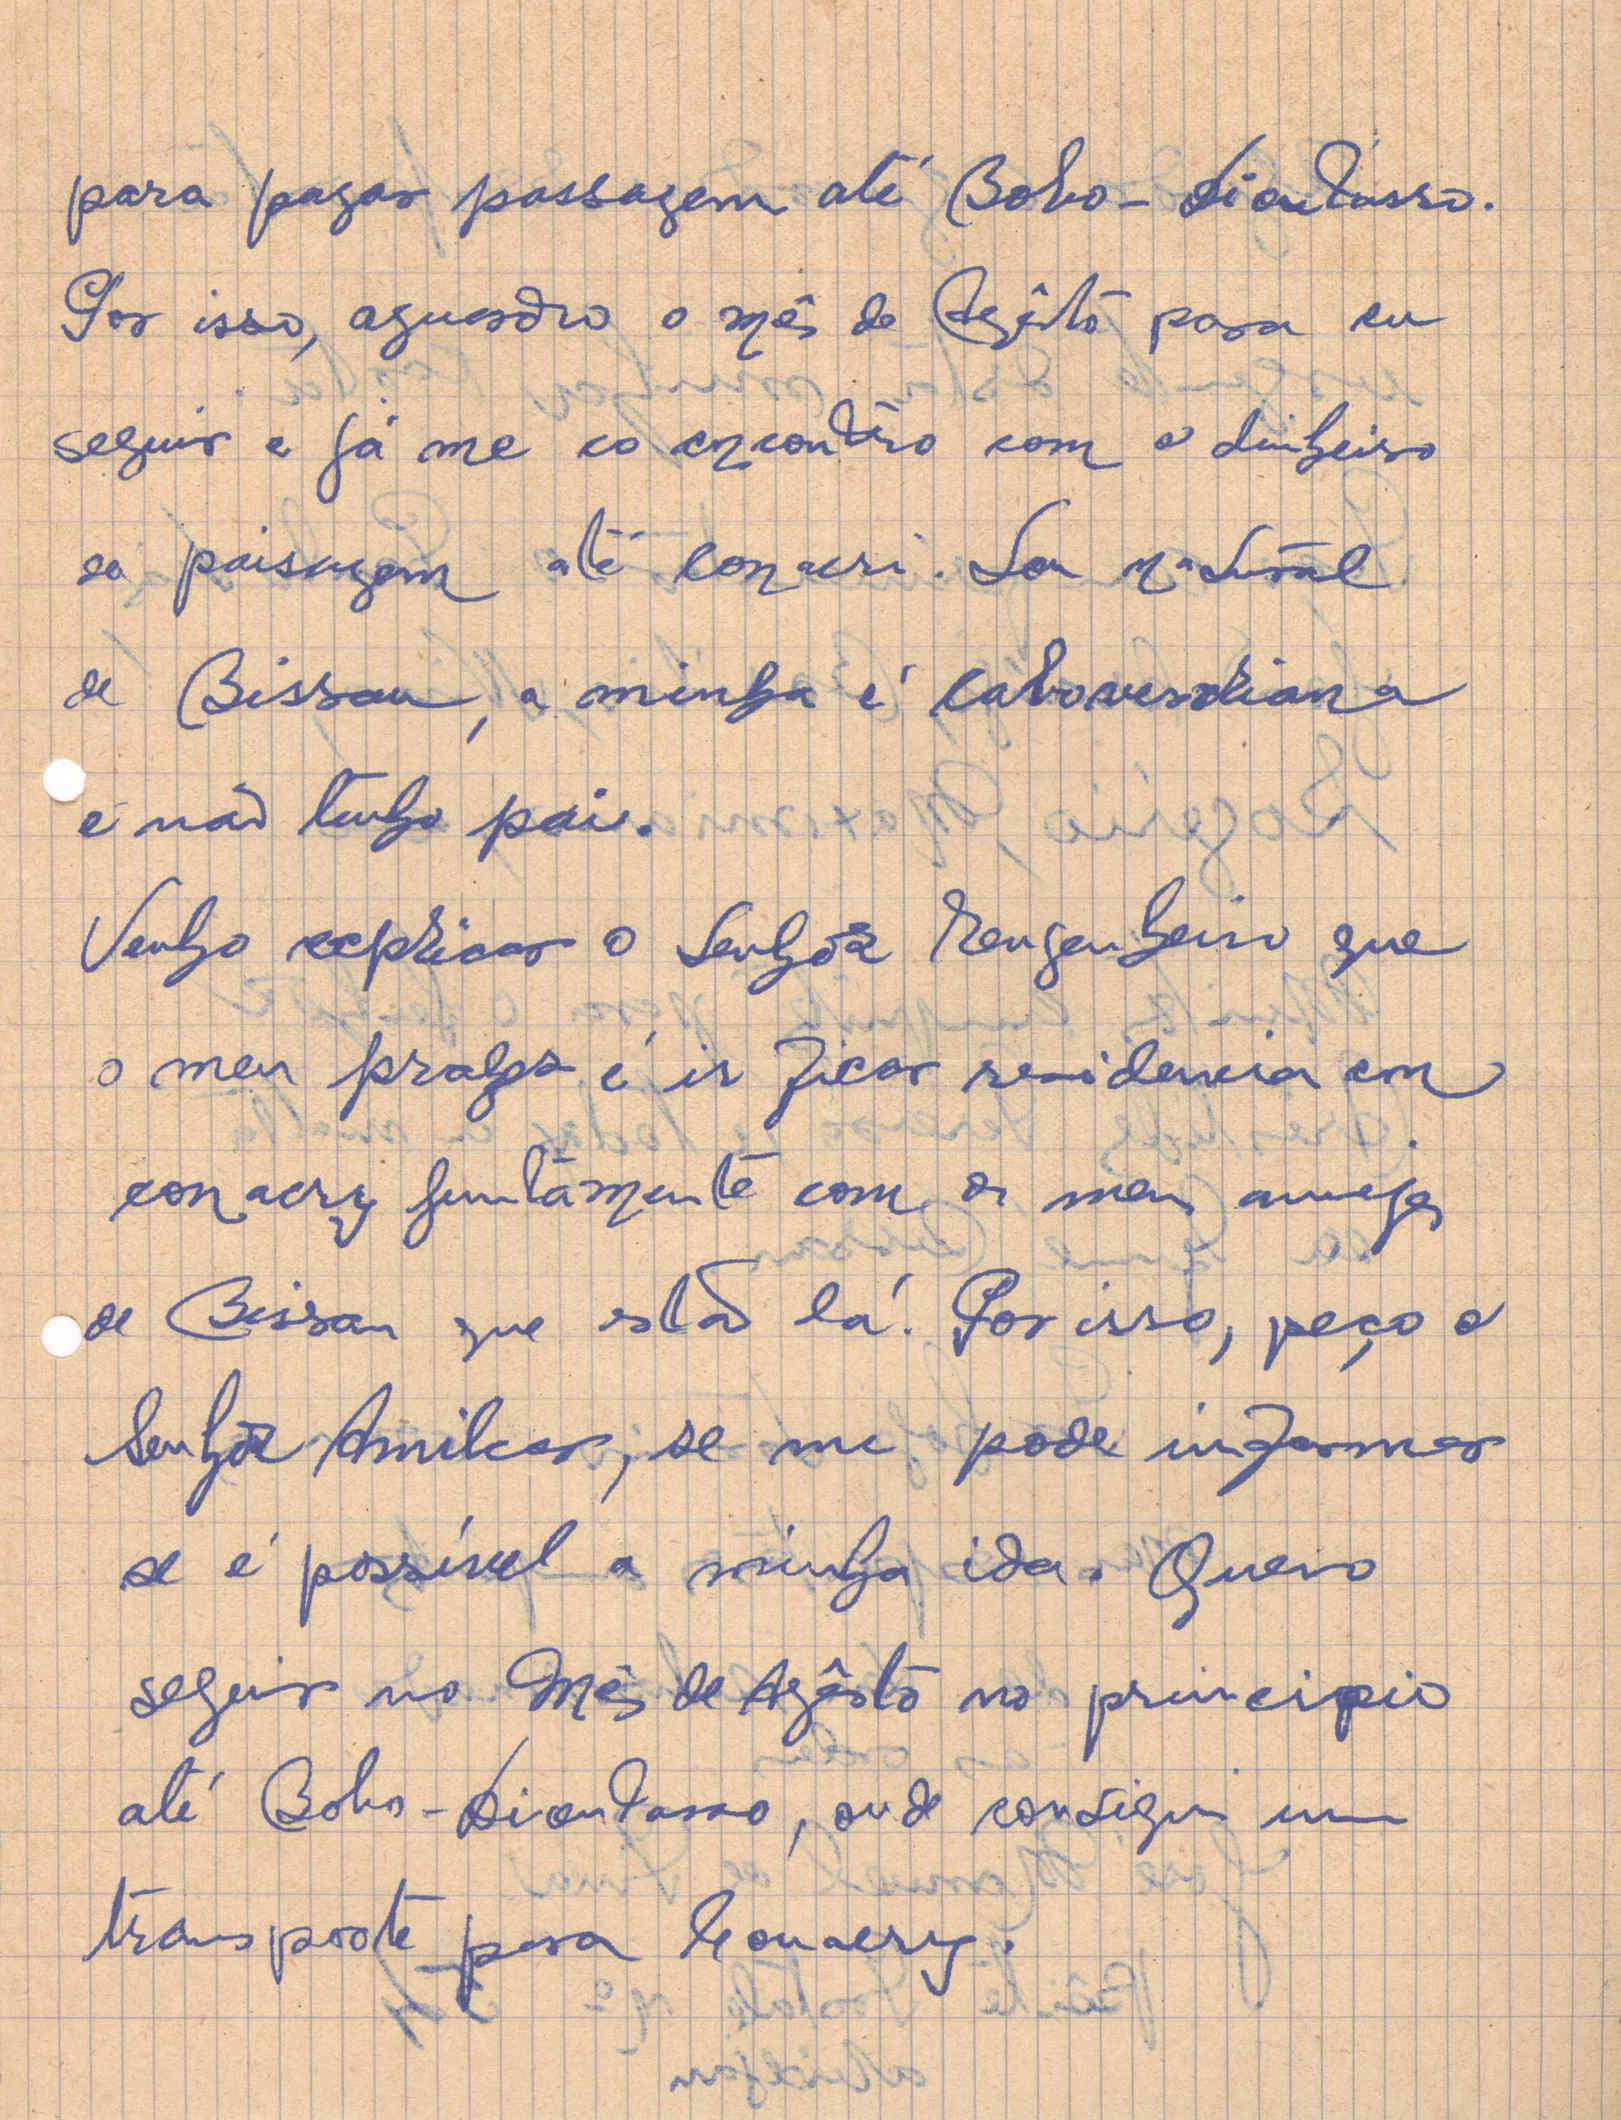 para pagar passagem até Bobo-Dioulasso.
Por isso, aguardro o mês de Agôsto para eu
seguir e já me eo encontro com o dinheiro
da paisagem até Conacri. Sou natural
de Bissau, a minha é caboverdiana
e não tenho pais.
Venho explicar o Senhôr Eengenheiro que
o meu é ir ficar residencia em
conacry juntamente com os meus amigos
de Bissau que estão lá. Por isso, peço o
Senhôr Amilcar, se me pode informar
se é possível a minha ida. Quero
seguir no Mês de Agôsto no principio
até Bobo-Dioulasso, onde consigui um
transporte para Conacry.